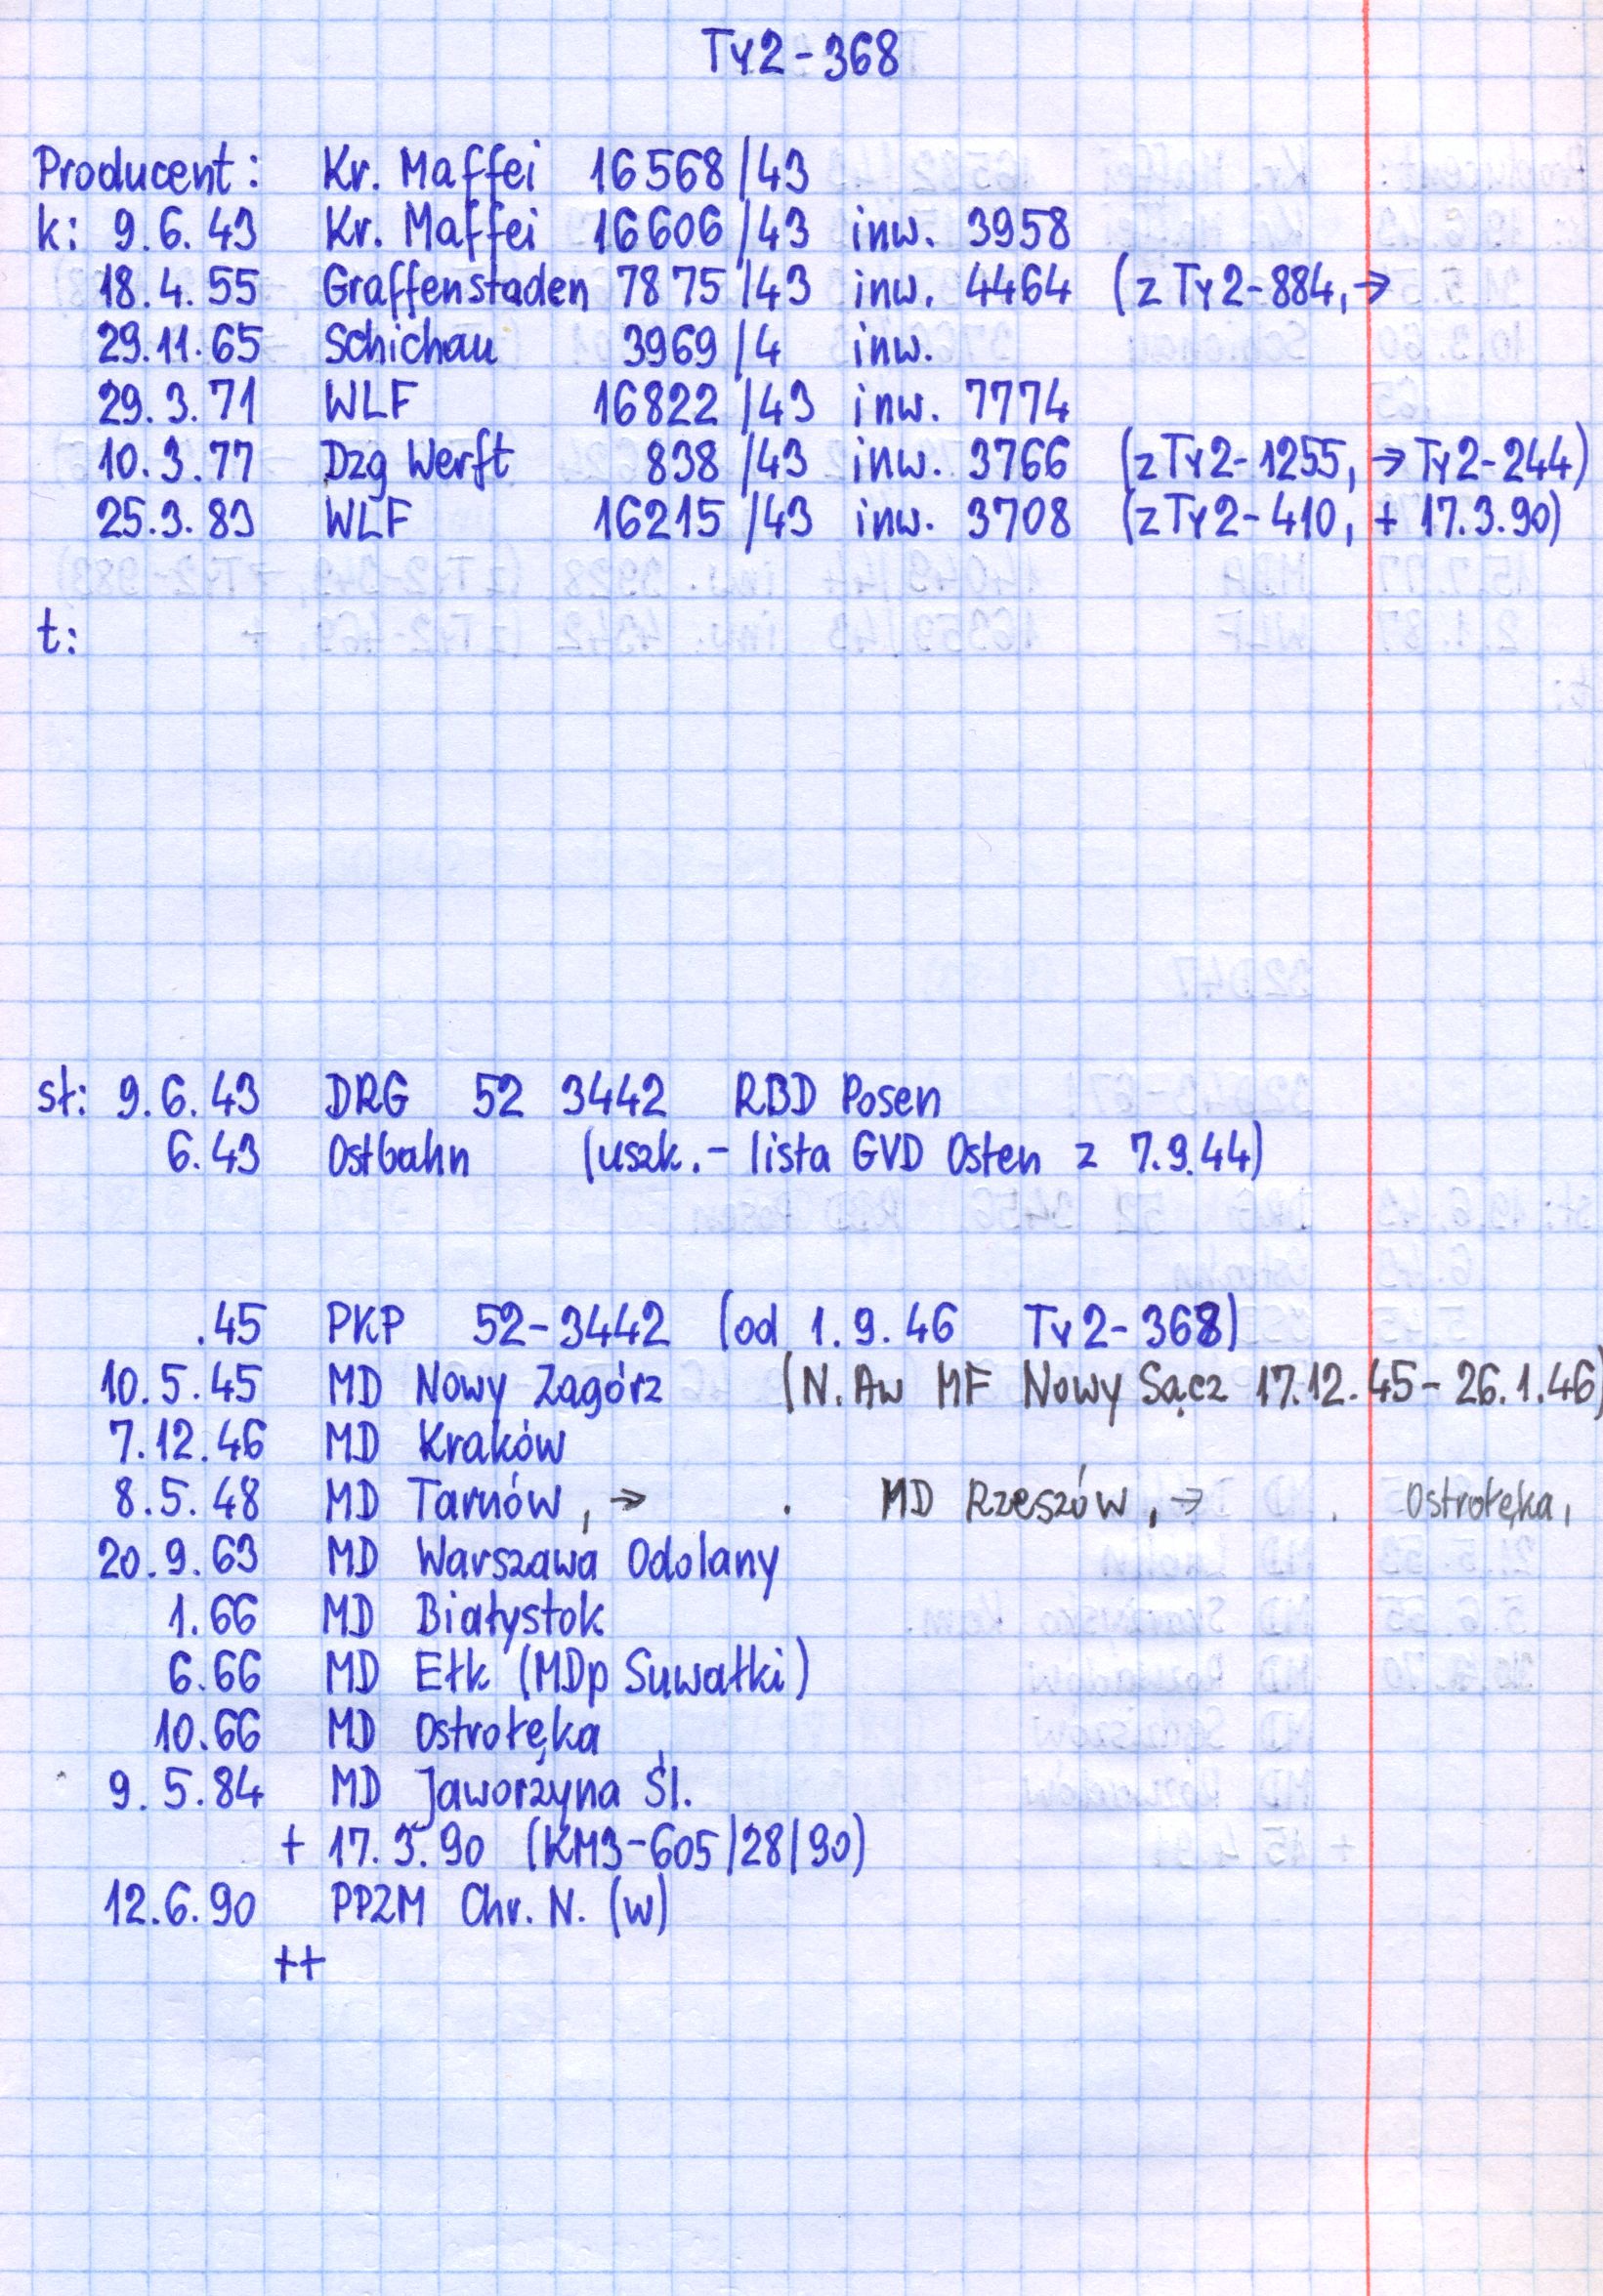 Ty2-368
Producent: Kr. Maffei 16568/43
k: 9.6.43 Kr. Maffei 16606/43 inw. 3958
18.4.55 Graffenstaden 7875/43 inw. 4464 (z Ty2-884, →
29.11.65 Schichau 3969/4 inw.
29.3.71 WLF 16822/43 inw. 7774
10.3.77 Dzg Werft 838/43 inw. 3766 (z Ty2-1255, → Ty2-244)
25.3.83 WLF 16215/43 inw. 3708 (z Ty2-410, + 17.3.90)
t:
st: 9.6.43 DRG 52 3442 RBD Posen
6.43 Ostbahn (uszk. - lista GVD Osten z 7.9.44)
.45 PKP 52-3442 (od 1.9.46 Ty2-368)
10.5.45 MD Nowy Zagórz (N.Aw MF Nowy Sącz 17.12.45 - 26.1.46)
7.12.46 MD Kraków
8.5.48 MD Tarnów, → . MD Rzeszów, → . Ostrołęka,
20.9.63 MD Warszawa Odolany
1.66 MD Białystok
6.66 MD Ełk (MDp Suwałki)
10.66 MD Ostrołęka
9.5.84 MD Jaworzyna Śl.
+ 17.3.90 (KM3-605/28/90)
12.6.90 PPZM Chr. N. (w)
++